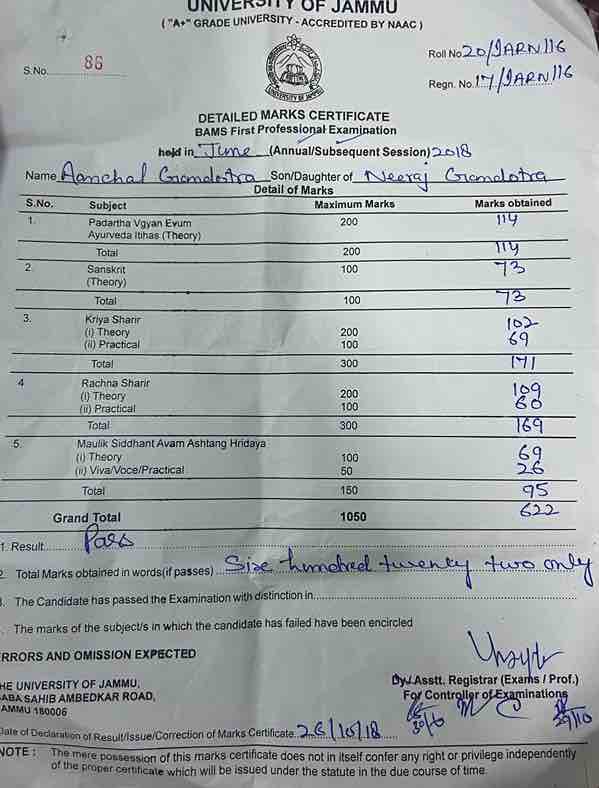 UNIVERSITY OF JAMMU
( "A+" GRADE UNIVERSITY - ACCREDITED BY NAAC )
Roll No 20/JARN/16
S.No. 86
Regn. No. 17/JARN/16
UNIVERSITY OF JAMMU
DETAILED MARKS CERTIFICATE
BAMS First Professional Examination
held in June (Annual/Subsequent Session) 2018
Name Aanchal Gandotra Son/Daughter of Neeraj Gandotra
Detail of Marks
S.No. Subject Maximum Marks Marks obtained
1. Padartha Vgyan Evum 200 114
Ayurveda Itihas (Theory)
Total 200 114
2. Sanskrit 100 73
(Theory)
Total 100 73
3. Kriya Sharir
(i) Theory 200 102
(ii) Practical 100 69
Total 300 171
4 Rachna Sharir
(i) Theory 200 109
(ii) Practical 100 60
Total 300 169
5. Maulik Siddhant Avam Ashtang Hridaya
(i) Theory 100 69
(ii) Viva/Voce/Practical 50 26
Total 150 95
Grand Total 1050 622
1. Result Pass
2. Total Marks obtained in words(if passes) Six hundred twenty two only
3. The Candidate has passed the Examination with distinction in
. The marks of the subject/s in which the candidate has failed have been encircled
ERRORS AND OMISSION EXPECTED
Dy./Asstt. Registrar (Exams / Prof.)
For Controller of Examinations
HE UNIVERSITY OF JAMMU,
ABA SAHIB AMBEDKAR ROAD,
AMMU 180006
30/10
29/10
Date of Declaration of Result/Issue/Correction of Marks Certificate 26/10/18
NOTE : The mere possession of this marks certificate does not in itself confer any right or privilege independently
of the proper certificate which will be issued under the statute in the due course of time.